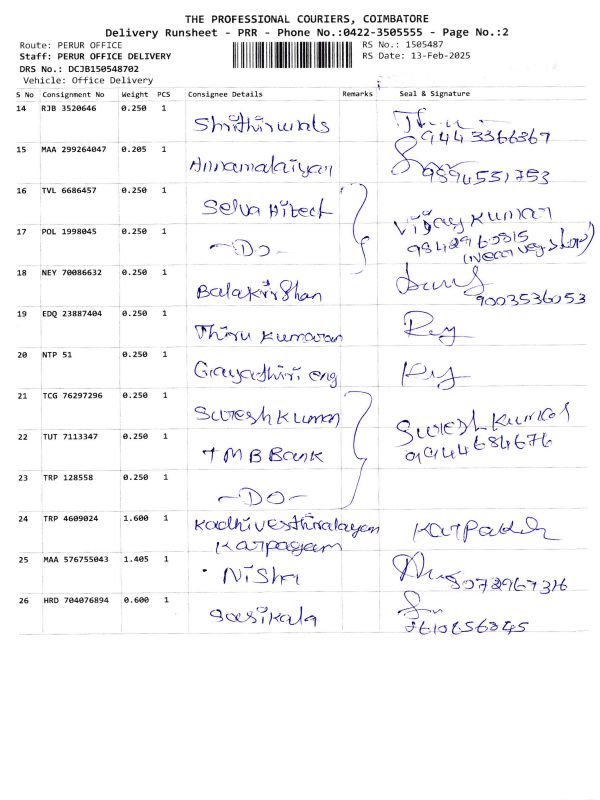 THE PROFESSIONAL COURIERS, COIMBATORE
Delivery Runsheet - PRR - Phone No.:0422-3505555 - Page No.:2
Route: PERUR OFFICE RS No.: 1505487
Staff: PERUR OFFICE DELIVERY RS Date: 13-Feb-2025
DRS No.: DCJB150548702
Vehicle: Office Delivery
S No Consignment No Weight PCS Consignee Details Remarks Seal & Signature
14 RJB 3520646 0.250 1
9443366367
15 MAA 299264047 0.205 1 Annamalaiyar
9894551753
16 TVL 6686457 0.250 1 Selva Hitech
Vijay Kumar
17 POL 1998045 0.250 1 -DO-
18 NEY 70086632 0.250 1 Balakrishan
9003536053
19 EDQ 23887404 0.250 1 Thiru Kumaran
20 NTP 51 0.250 1 Gayathiri eng
21 TCG 76297296 0.250 1 Suresh Kumar
Suresh Kumar
22 TUT 7113347 0.250 1 TMB Bank
9944684676
23 TRP 128558 0.250 1 -DO-
24 TRP 4609024 1.600 1
Karpagam
25 MAA 576755043 1.405 1 Nisha
26 HRD 704076894 0.600 1 Sasikala